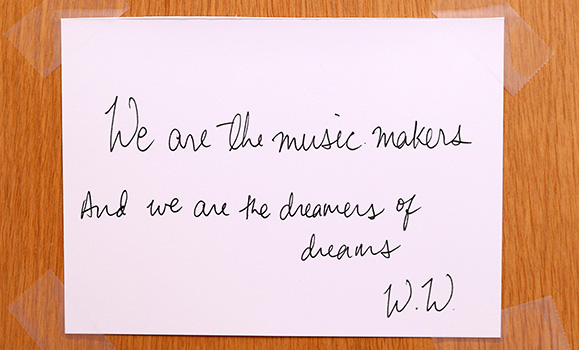 We are the music makers
And we are the dreamers of
dreams
W.W.